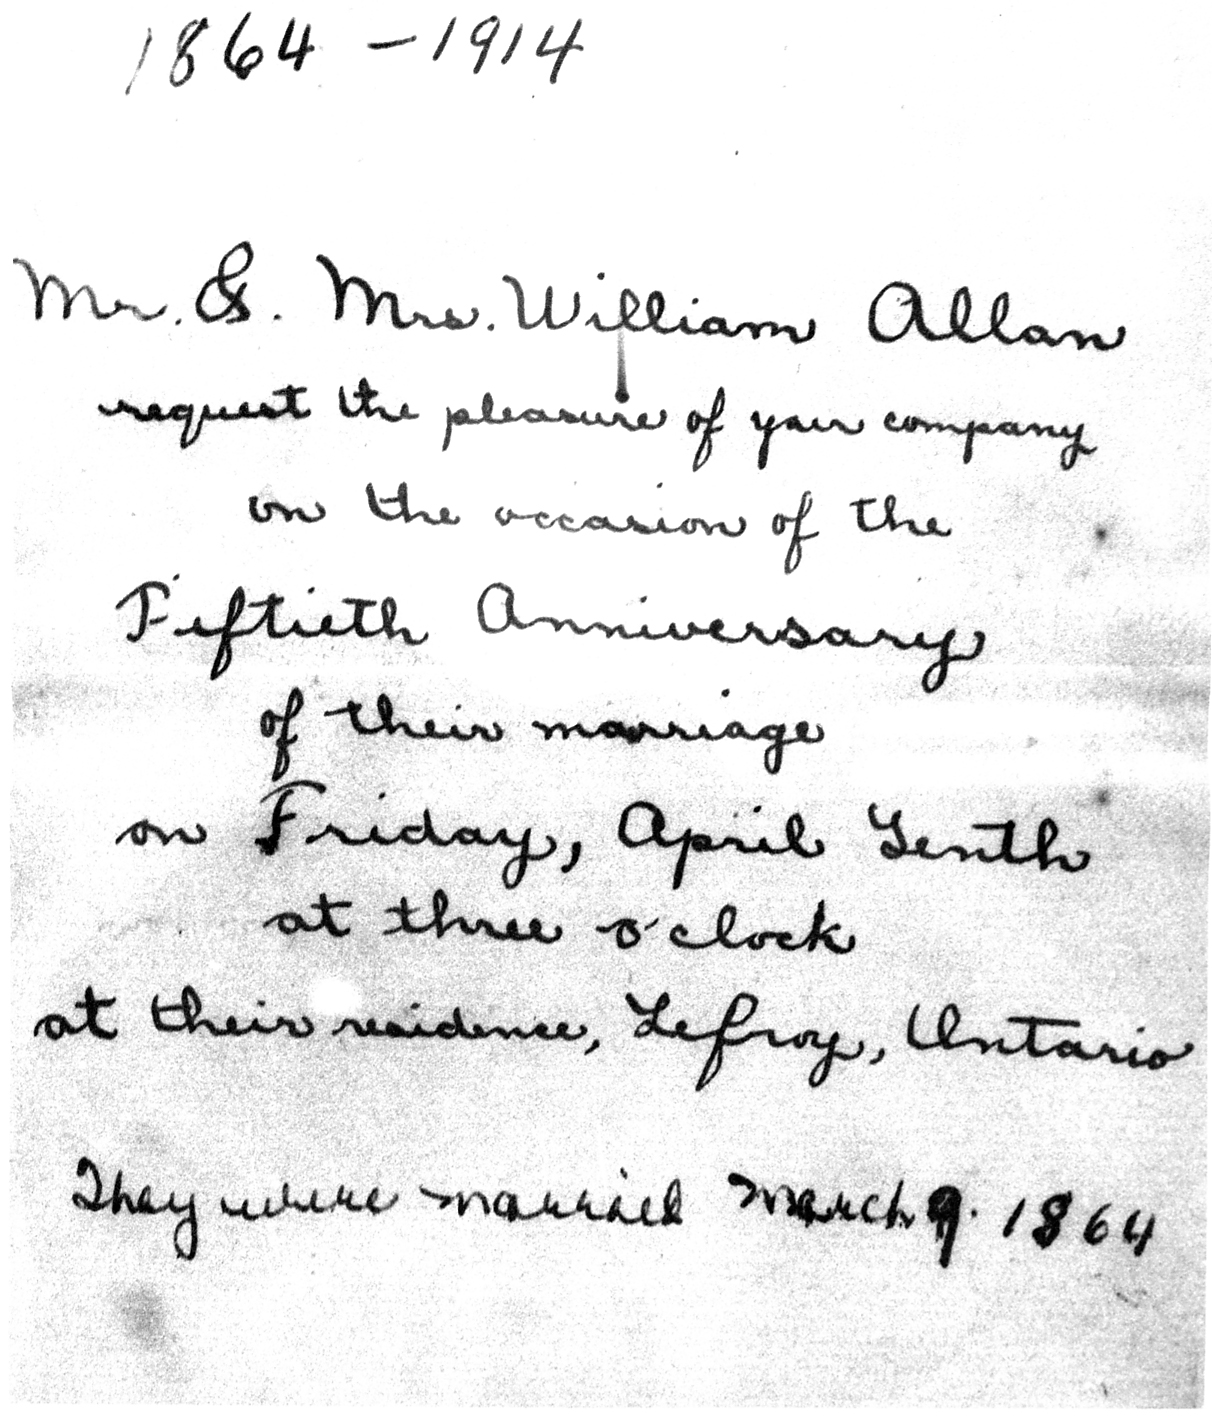 1864 - 1914
Mr. & Mrs. William Allan
request the pleasure of your company
on the occasion of the
Fiftieth Anniversary
of their marriage
on Friday, April Tenth
at three o'clock
at their residence, Lefroy, Ontario
They were married March 9. 1864